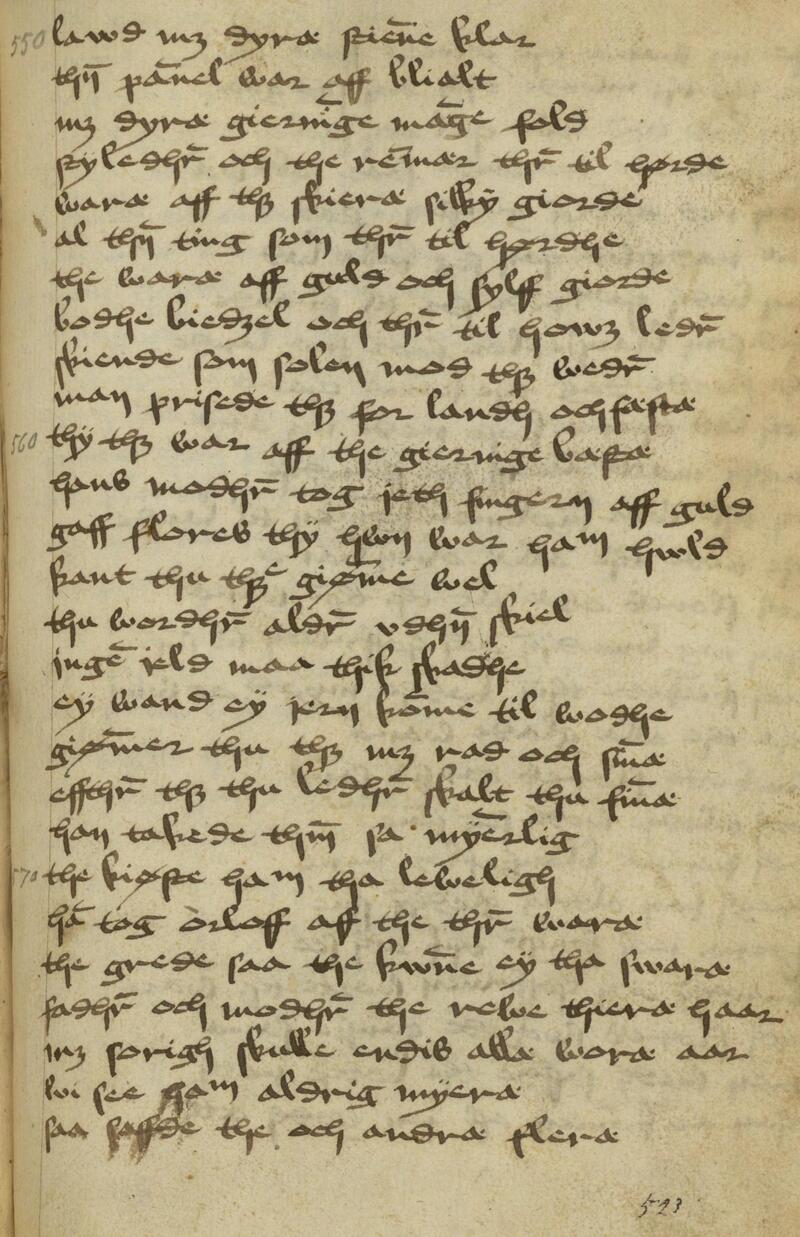 550 lawd mz dyræ stiēne klar
thn̄ pānel war aff blialt
mz dyræ gierni̅ge māge fold
styledhr̄ och the rēmær thr̄ til hørde
waræ aff thz skieræ silky giorde
al thn̄ ting som thr̄ til hørdhe
the waræ aff guld och sylff giorde
bodhe biedzel och thr̄ til howz ledr̄
skiende som solen mod thz wedr̄
man prisede thz for landh och fæstæ
560 thÿ thz war aff the gierninge bæstæ
hans modhr̄ tog jeth fingern aff guld
gaff flores thÿ hwn war ham hwld
kant thu thze giø̅me wel
thu wordhr̄ aldr̄ vdhn̄ skiel
jngē jeld maa thik skadhe
eÿ wand eÿ jern kōme til wodhe
giø̅mer thu thz mz rad och sin̄æ
effthr̄ thz thu ledhr̄ skalt thu fin̄æ
han takede thm̄ sa myērlig
570 the kiøste ham tha leweligh
hā tog orloff aff the thr̄ waræ
the grede saa the kwn̄e eÿ tha swaræ
fadhr̄ och modhr̄ the rewe thieræ haar
mz sorigh skulle endis allæ woræ aar
wi see ham aldrig mÿeræ
saa saffde the och andræ fleræ
523